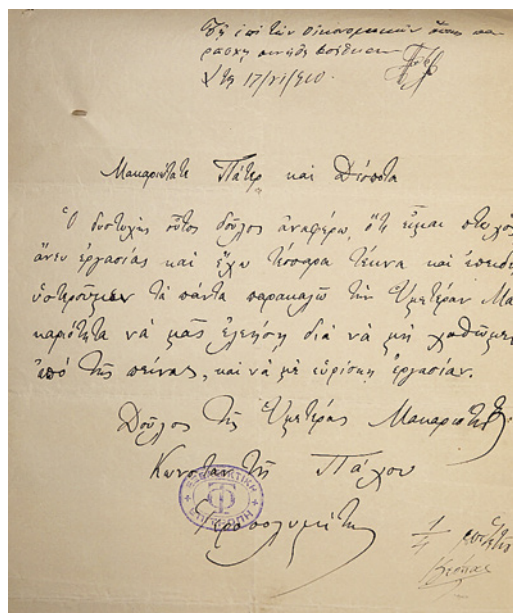 Τῇ ἐπὶ τῶν Οἰκονομικῶν ὅπως πα-
ράσχῃ συνήθη βοήθειαν
τῇ 17/VI/910
Μακαριώτατε Πάτερ καὶ Δέσποτα
Ὁ δυστυχὴς οὗτος δοῦλος ἀναφέρω, ὅτι εἶμαι πτωχὸς
ἄνευ ἐργασίας καὶ ἔχω τέσσαρα τέκνα καὶ ἐπειδὴ
ὑστεροῦμεν τὰ πάντα παρακαλῶ τὴν Ὑμετέραν Μα
καριότητα νὰ μᾶς ἐλεήσῃ διὰ νὰ μὴ χαθῶμεν
ἀπὸ τῆς πείνας, καὶ νὰ μὲ εὑρίσκῃ ἐργασίαν.
Δοῦλος τῆς Ὑμετέρας Μακαριότητος
Κωνσταντῆς Πάχου
ΕΞΕΛΕΓΚΤΙΚΗ ΕΠΙΤΡΟΠΗ
Ἱεροσολυμίτης
1/4